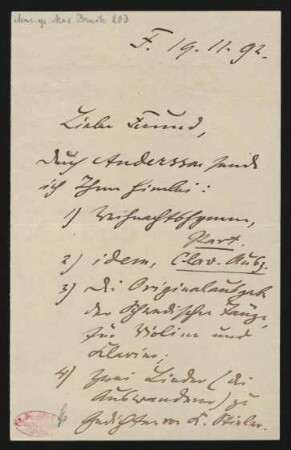 Mus. ep. Max Bruch 203
F. 19.11.92.
Lieber Freund,
durch Andersson sende
ich Ihnen hierbei:
1) Weihnachtshymne,
Part.
2) idem, Clav. Ausz.
3) Die Originalausgabe
der Schwedischen Tänze,
für Violine und
Klavier;
4) zwei Lieder (die
Auswanderer) zu
Gedichten von K. Stieler.